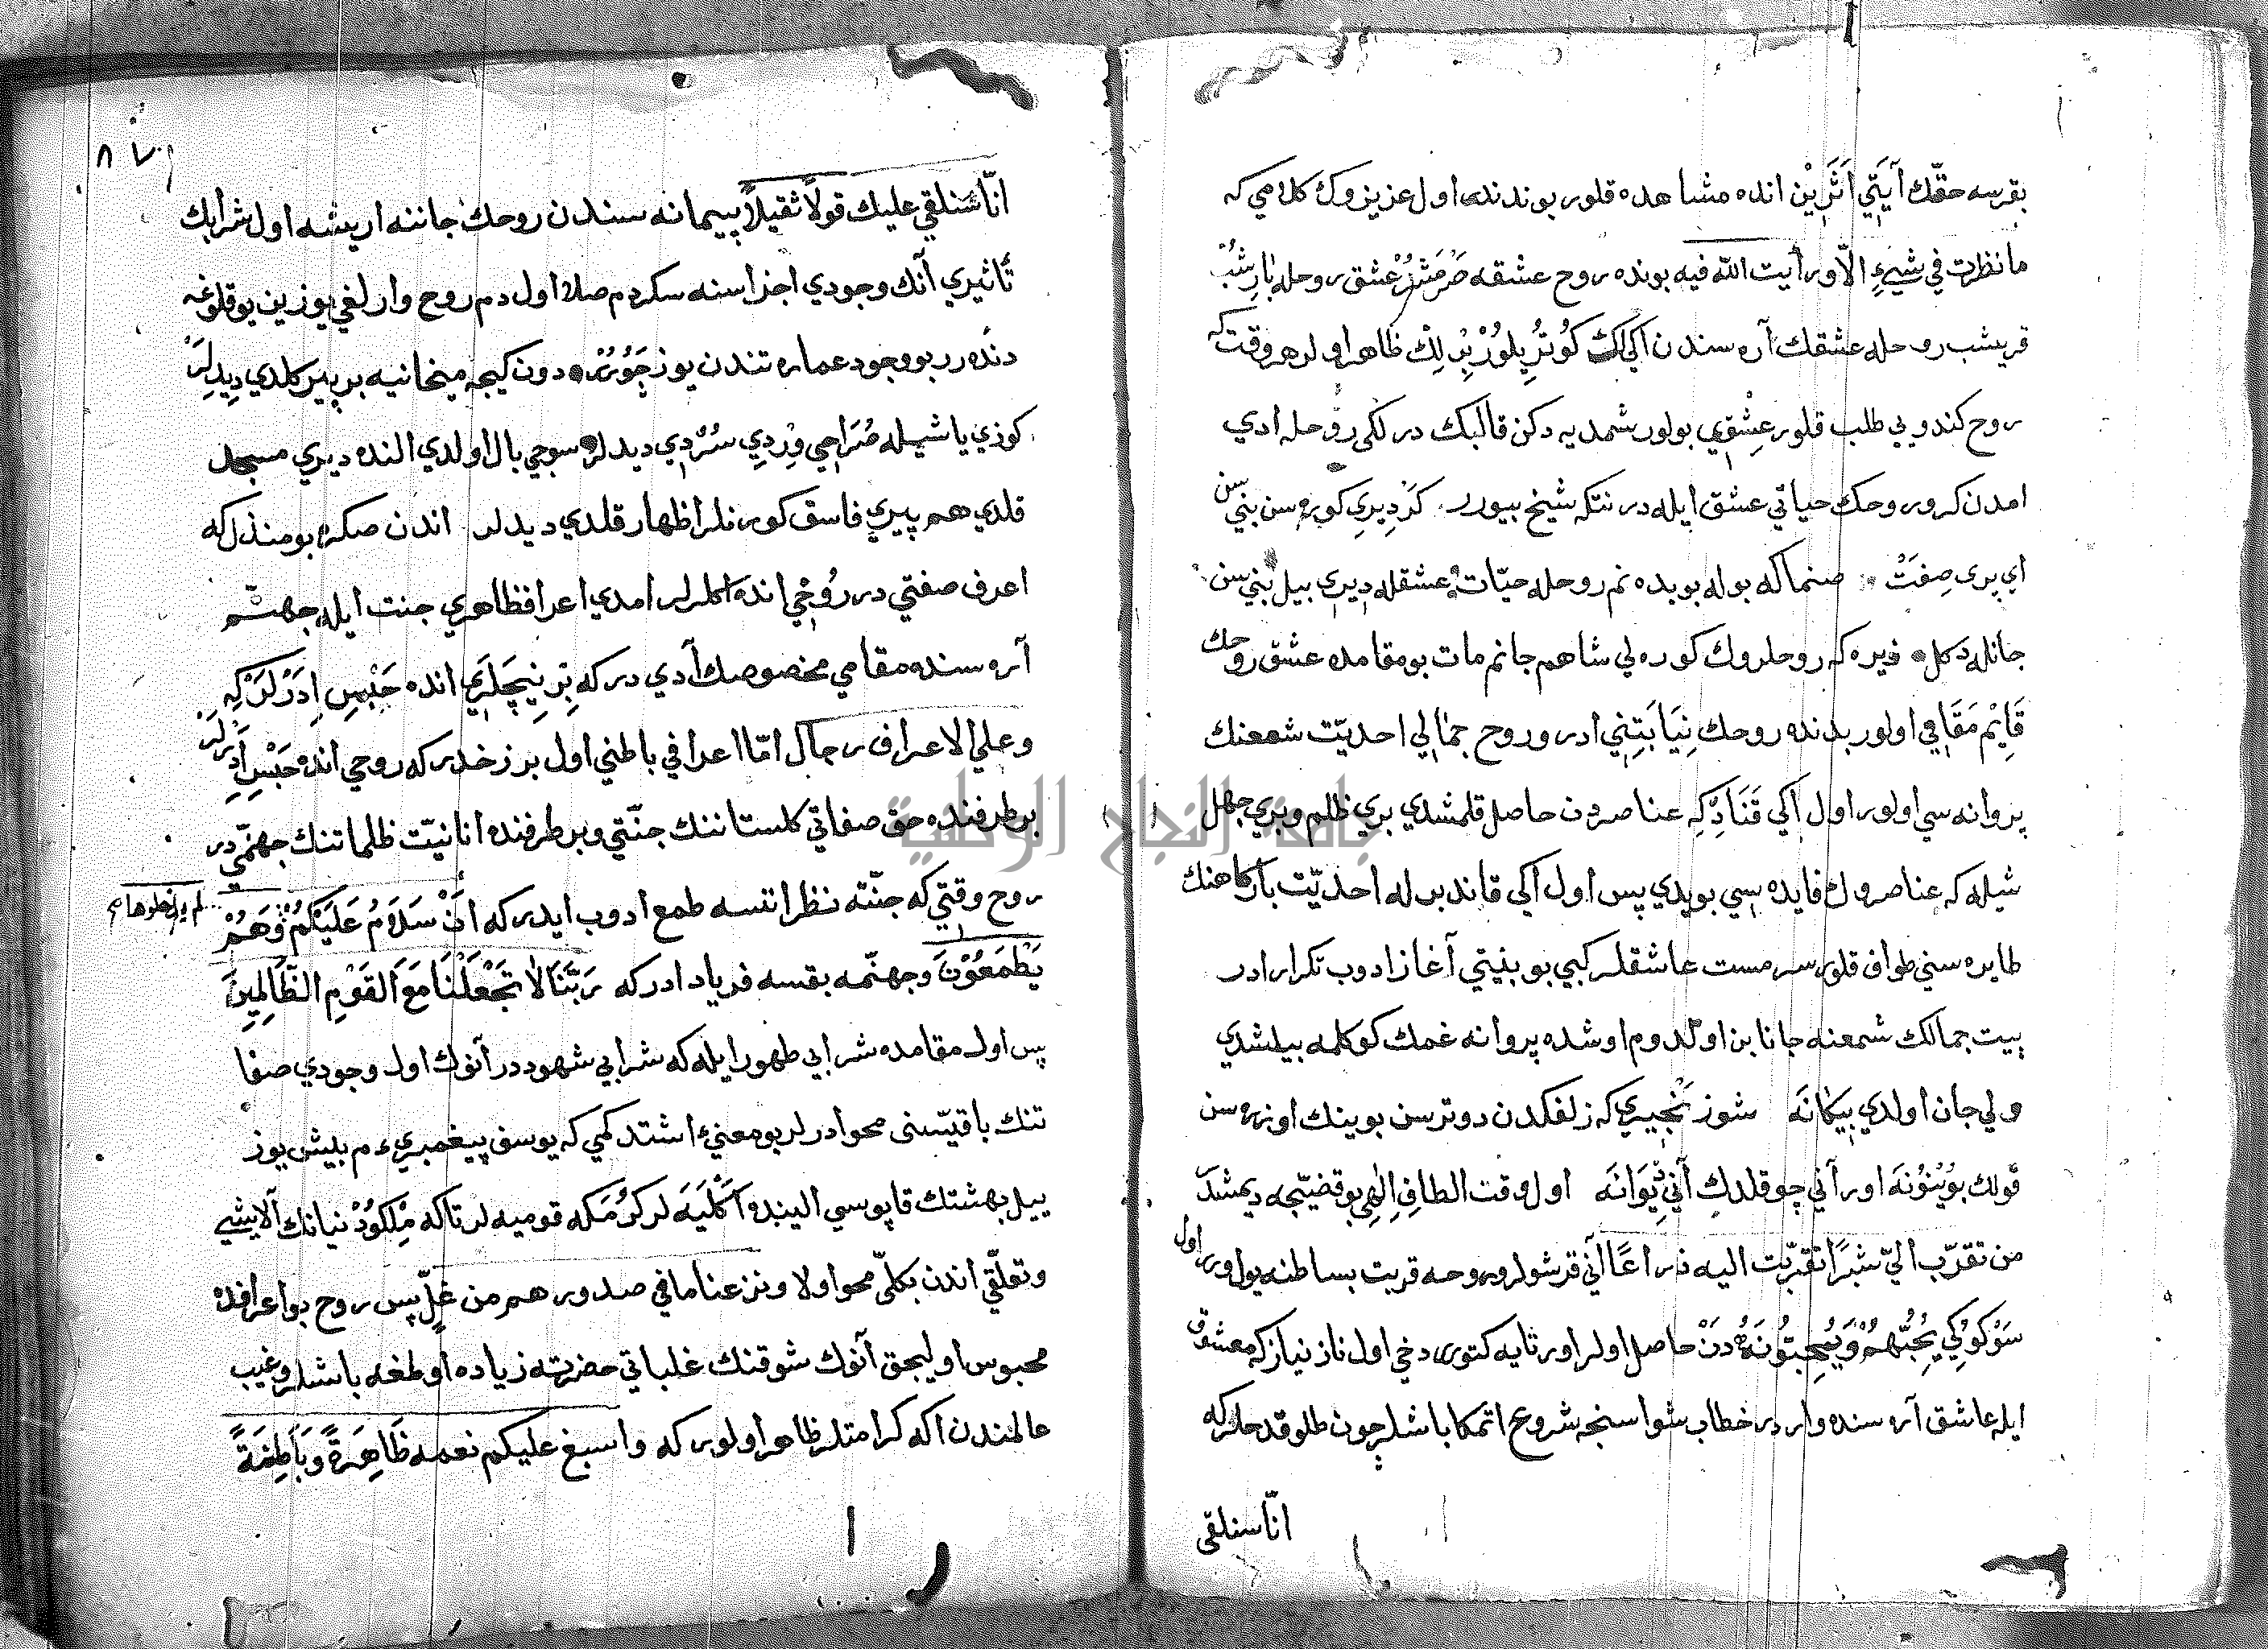 بقرسه حقّك آيَتِي اَثَرِيْن انده مشاهده قلور بوندنده اول عزيزوك كلامي كه
ما نظرت في شيءٍ الّا ورأيت الله فيه بونده روح عشقه صَرْمَشُرْ عشق روحله بَارِشُبْ
قريشب روحله عشقك آره سندن اكيلك كُوتُرِيلُورْ بِرْلِكْ ظاهر اولور هر وقت كه
روح كندويي طلب قلور عِشْقِي بولور شمديه دكن قالبك دركلكى روحله ادي
امدنكرو روحك حياتي عشق ايله در نتكه شيخ بيورر كَرْدِيرِي كوره سن بني سن
اي پري صِفَتْ صنما كه بوله بوبدنم روحله حيات عشقله ديري بيل بني سن
جانله دكل ديره كه روحلروك كوره لي شاهم جانم مات بو مقامده عشق روحك
قَايِمْ مَقَامِي اولور بدنده روحك نِيَابَتِنِي ادر و روح جمالي احديّت شمعنك
پروانه سي اولور اول اكي قَنَادِكِه عناصردن حاصل قلمشدي بري ظلم وبري جهل
شيله كه عناصروك فايده سي بويدي پس اول اكي قاندبرله احديّت باركاهنك
طايره سني طواف قلور سرمست عاشقلر كبي بو بيتي آغاز ادوب تكرار ادر
بيت جمالك شمعنه جانا بن اولدوم اوشده پروانه غمك كوكلمه بيلشدي
ولي جان اولدي بيكَانَه شوز نْجِيرِي كه زلفكدن دوترسن بوينك اوزره سن
قولك بويْنُونَه اور آني چو قلدك آني دِيوَانَه اول وقت الطافِ اِلٰهِي بو قضيّجه ديمشدَ
من تقرّب اليّ شبرًا تقرّبت اليه ذراعًا آني قرشولر و روحه قربت بساطنه يول ويرر اول
سَوْكُوكِي يُحِبُّهمْ وَيُحِبُّونَهُ دَنْ حاصل اولر اورتايه كتورر دخي اول ناز نياز كه معشوق
ايله عاشق آره سنده واردر خطاب شواسنجه شروع اتمكا باشلر چون طلو قدحلر كه
انّا سنلقي
٨٧
انّا سنلقي عليك قولاً ثقيلاً پيمانه سندن روحك جاننه اريشه اول شرابك
تأثيري آنك وجودي اجزاسنه سكردم صلا اول دم روح وارلغي يوزين يوقلوغه
دندرر بو وجود عماره تندن يوز چَوُرُرْ دون كيجه ميخانيه بر پير كلدي ديدلِرْ
كوزي ياشيله صُرَاحِي وِرْدِي سُرْدِي ديدلر سوجي بال اولدي النده ديري مسجد
قلدي هم پيري فاسق كورنلر اظهار قلدي ديدلر اندن صكره بو منذل كه
اعرف صفتي در رُوحِي انده اكلرلر امدي اعراف ظاهري جنت ايله جهنّم
آره سنده مقامي مخصوصك آدي در كه بِرْ نِيچَلَرِي انده حَبْسِ اِدَرْلَرْكِه
وعلي الاعراف رجال امّا اعرافي باطني اول برزخدر كه روحي انده حَبْسِ اَدَرْلَرْ
بر طرفنده حق صفاتي كلستاننك جنّتي وبر طرفنده انانيّت ظلماتنك جهنّمي در
روح وقتي كه جنّته نظر اتسه طمع ادوب ايدر كه اَنْ سَلَامٌ عَلَيْكُمْ وَهُمْ
لم يدخلوها
يَطْمَعُوْنَ وجهنّمه بقسه فرياد ادر كه رَبَّنَا لَا تَجْعَلْنَا مَعَ القَوْمِ الظَّالِمِينَ
پس اول مقامده شرابي طهور ايله كه شرابي شهود در آنوك اول وجودي صفا
تنك باقيّسنى محو ادرلر بو معنيء اشتدكمي كه يوسف پيغمبريء م بيش يوز
ييل بهشتك قاپوسي الينده اَكْلَيَه لر كرُمَكه قوميه لر تاكه مُلْكِ دُنيانك آلايشي
وتعلّقي اندن بكلّي محو اولا ونزعنا ما في صدورهم من غلّ پس روح بو اعرافده
محبوس اوليجق آنوك شوقنك غلباتي حضرته زياده اولمغه باشلر و غيب
عالمندن اكه كرامتلر ظاهر اولور كه واسبغ عليكم نعمه ظَاهِرَةً وَبَاطِنَةً